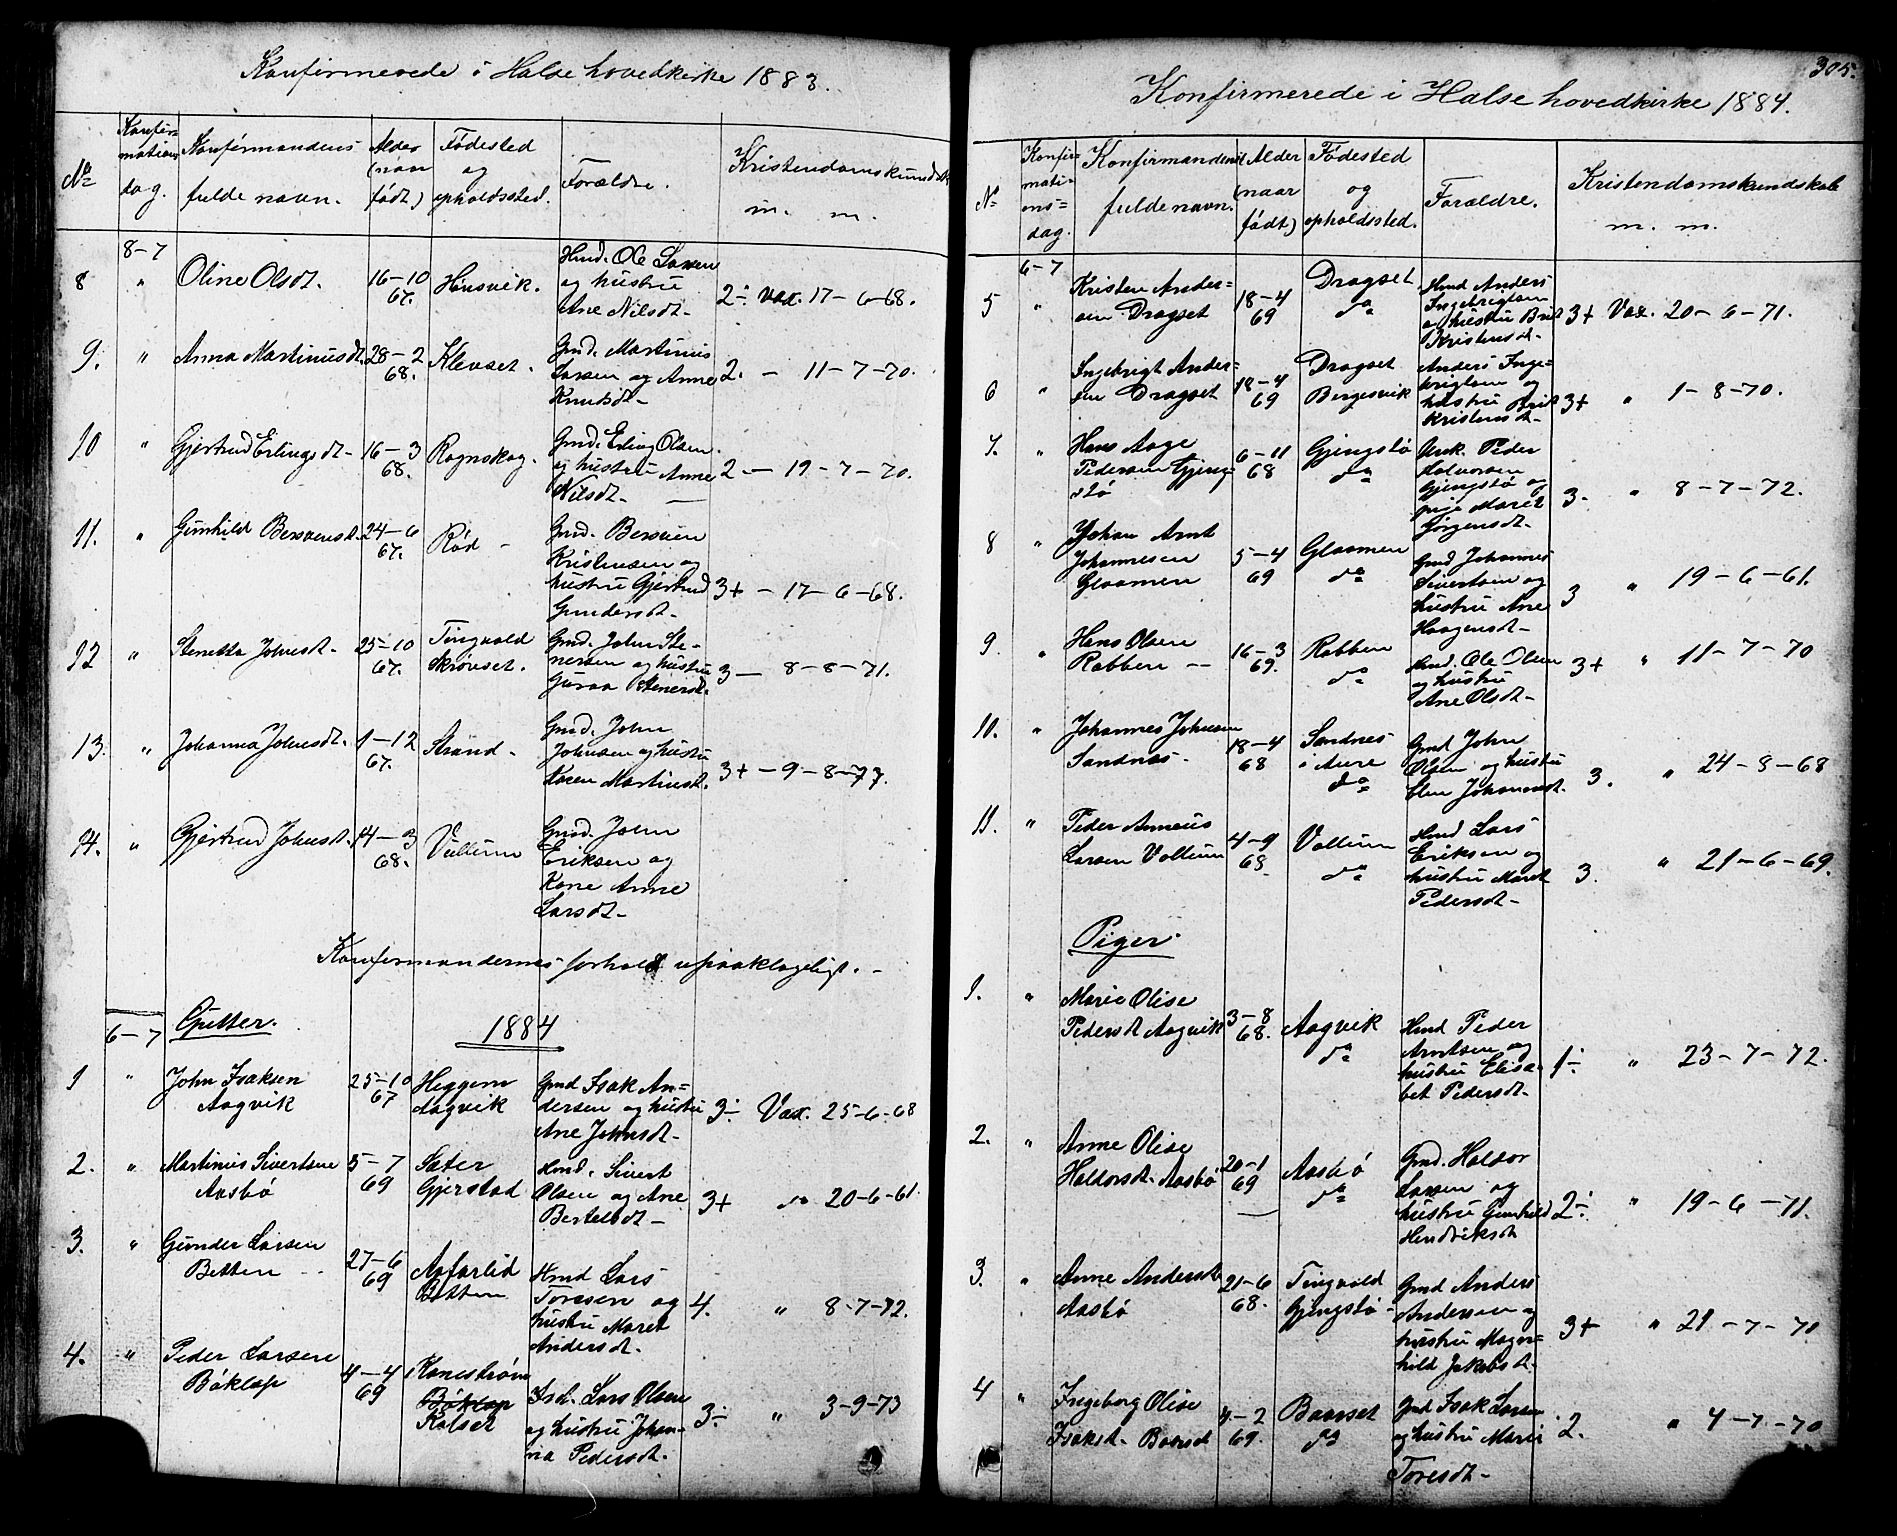 Konfirmerede i Halse hovedkirke 1883.
No
Konfir-
mations
dag.
Konfirmandens
fulde navn.
Alder
(naar
født)
Fødested
og
opholdssted.
Forældre.
Kristendomskundsk
m. m.
8-7
8 " Oline Olsdt. 16-10
67. Hønsvik.
Hmd. Ole Larsen
og hustru
Ane Nilsdt-
2÷ Vax. 17-6-68.
9. " Anna Martinusdt. 28-2
68. Klevset.
Gmd. Martinus
Larsen og Anne
Knudsdt-
2. - 11-7-70.
10 " Gjertrud Erlingsdt- 16-3
68. Rognskog.
Gmd. Erling Olsen
og hustru Anne
Nilsdt-
2 - 19-7-70.
11. " Gunhild Bersvensdt. 24-6
67. Rød -
Gmd. Bersven
Kristensen og
hustru Gjertrud
Gundersdt-
3+ - 17-6-68.
12 " Stenetta Johnsdt- 25-10
67. Tingvold
Skrøvset.
Gmd. John Ste-
nersen og hustru
Guraa Stenersdt.
3 - 8-8-71.
13. " Johanna Johnsdt. 1-12
67. Strand -
Gmd. John
Johnsen og hustru
Karen Martinsdt.
3+ - 9-8-77.
14. " Gjertrud Johnsdt. 14-3
68. Vullum
Gmd. John
Eriksen og
Kone Anne
Larsdt-
Konfirmandernes forhold upaaklageligt. -
6-7 Gutter. 1884
1 " John Isaksen
Aagvik
25-10
67
Heggem
Aagvik
Gmd Isak An-
dersen og hustru
Ane Johnsdt-
3÷ Vax. 25-6-68
2. " Martinus Sivertsen
Aasbø
5-7
69
Sæter
Gjerstad
Hmd. Sivert
Olsen og Ane
Bertelsdt-
3+ " 20-6-61.
3. " Gunder Larsen
Betten --
27-6
69
Aafarlid
Betten
Hmd Lars
Toresen og
hustru Maret
Andersdt.
4. " 8-7-72.
4. " Peder Larsen
Böklap
4-4
69
Kanestrøm
Böklap
Kalset
Lars Olsen
og hustru Johan-
na Pedersdt.
3÷ " 3-9-73
305.
Konfirmerede i Halse hovedkirke 1884.
No
Konfir-
mati-
ons-
dag.
Konfirmandens
fulde navn.
Alder
(naar
født)
Fødested
og
opholdssted.
Forældre.
Kristendomskundskab
m. m.
6-7
5 " Kristen Ander-
sen Dragset
18-4
69
Dragset
do
Hmd Anders
Ingebrigtsen
og hustru Brit
Kristensdt-
3+ Vax. 20-6-71.
6 " Ingebrigt Ander-
sen Dragset
18-4
69
Dragset
Bergesvik
Anders Inge-
brigtsen og
hustru Brit
Kristensdt-
3+ " 1-8-70.
7. " Hans Aage
Pedersen Gjeng-
stø
6-11
68
Gjengstø
do
Unk. Peder
Halvorsen
Gjengstø og
pige Maret
Jørgensdt-
3. " 8-7-72.
8 " Johan Arnt
Johannesen
Glaamen
5-4
69
Glaamen
do
Gmd Johannes
Sivertsen og
hustru Ane
Haagensdt-
3 " 19-6-61.
9. " Hans Olsen
Rabben --
16-3
69.
Rabben
do
Hmd. Ole Olsen
og hustru
Ane Olsdt-
3+ " 11-7-70
10. " Johannes Johnsen
Sandnes -
18-4
68
Sandnes
i Aure
do
Gmd John
Olsen og hustru
Elen Johannesdt.
3. " 24-8-68
11. " Peder Anneus
Larsen Vollum
4-9
68
Vollum
do
Hmd Lars
Eriksen og
hustru Maret
Pedersdt-
3. " 21-6-69.
Piger
1. " Marie Olise
Pedersdt Aagvik
3-8
68.
Aagvik
do
Hmd Peder
Arntsen og
hustru Elisa-
bet Pedersdt-
1÷ " 23-7-72.
2. " Anne Olise
Haldorsdt. Aasbø
20-1
69
Aasbø
do
Gmd. Haldor
Larsen og
hustru Gunhild
Hendriksdt
2÷ " 19-6-71.
3. " Anne Andersdt
Aasbø
21-6
68.
Tingvold
Gjengstø-
Gmd Anders
Andersen og
hustru Magn-
hild Jakobsdt.
3+ " 21-7-70
4 " Ingeborg Olise
Isaksdt. Baarset
4-2
69.
Baarset
do
Gmd Isak Larsen
og hustru Marit
Toresdt-
2. " 4-7-70